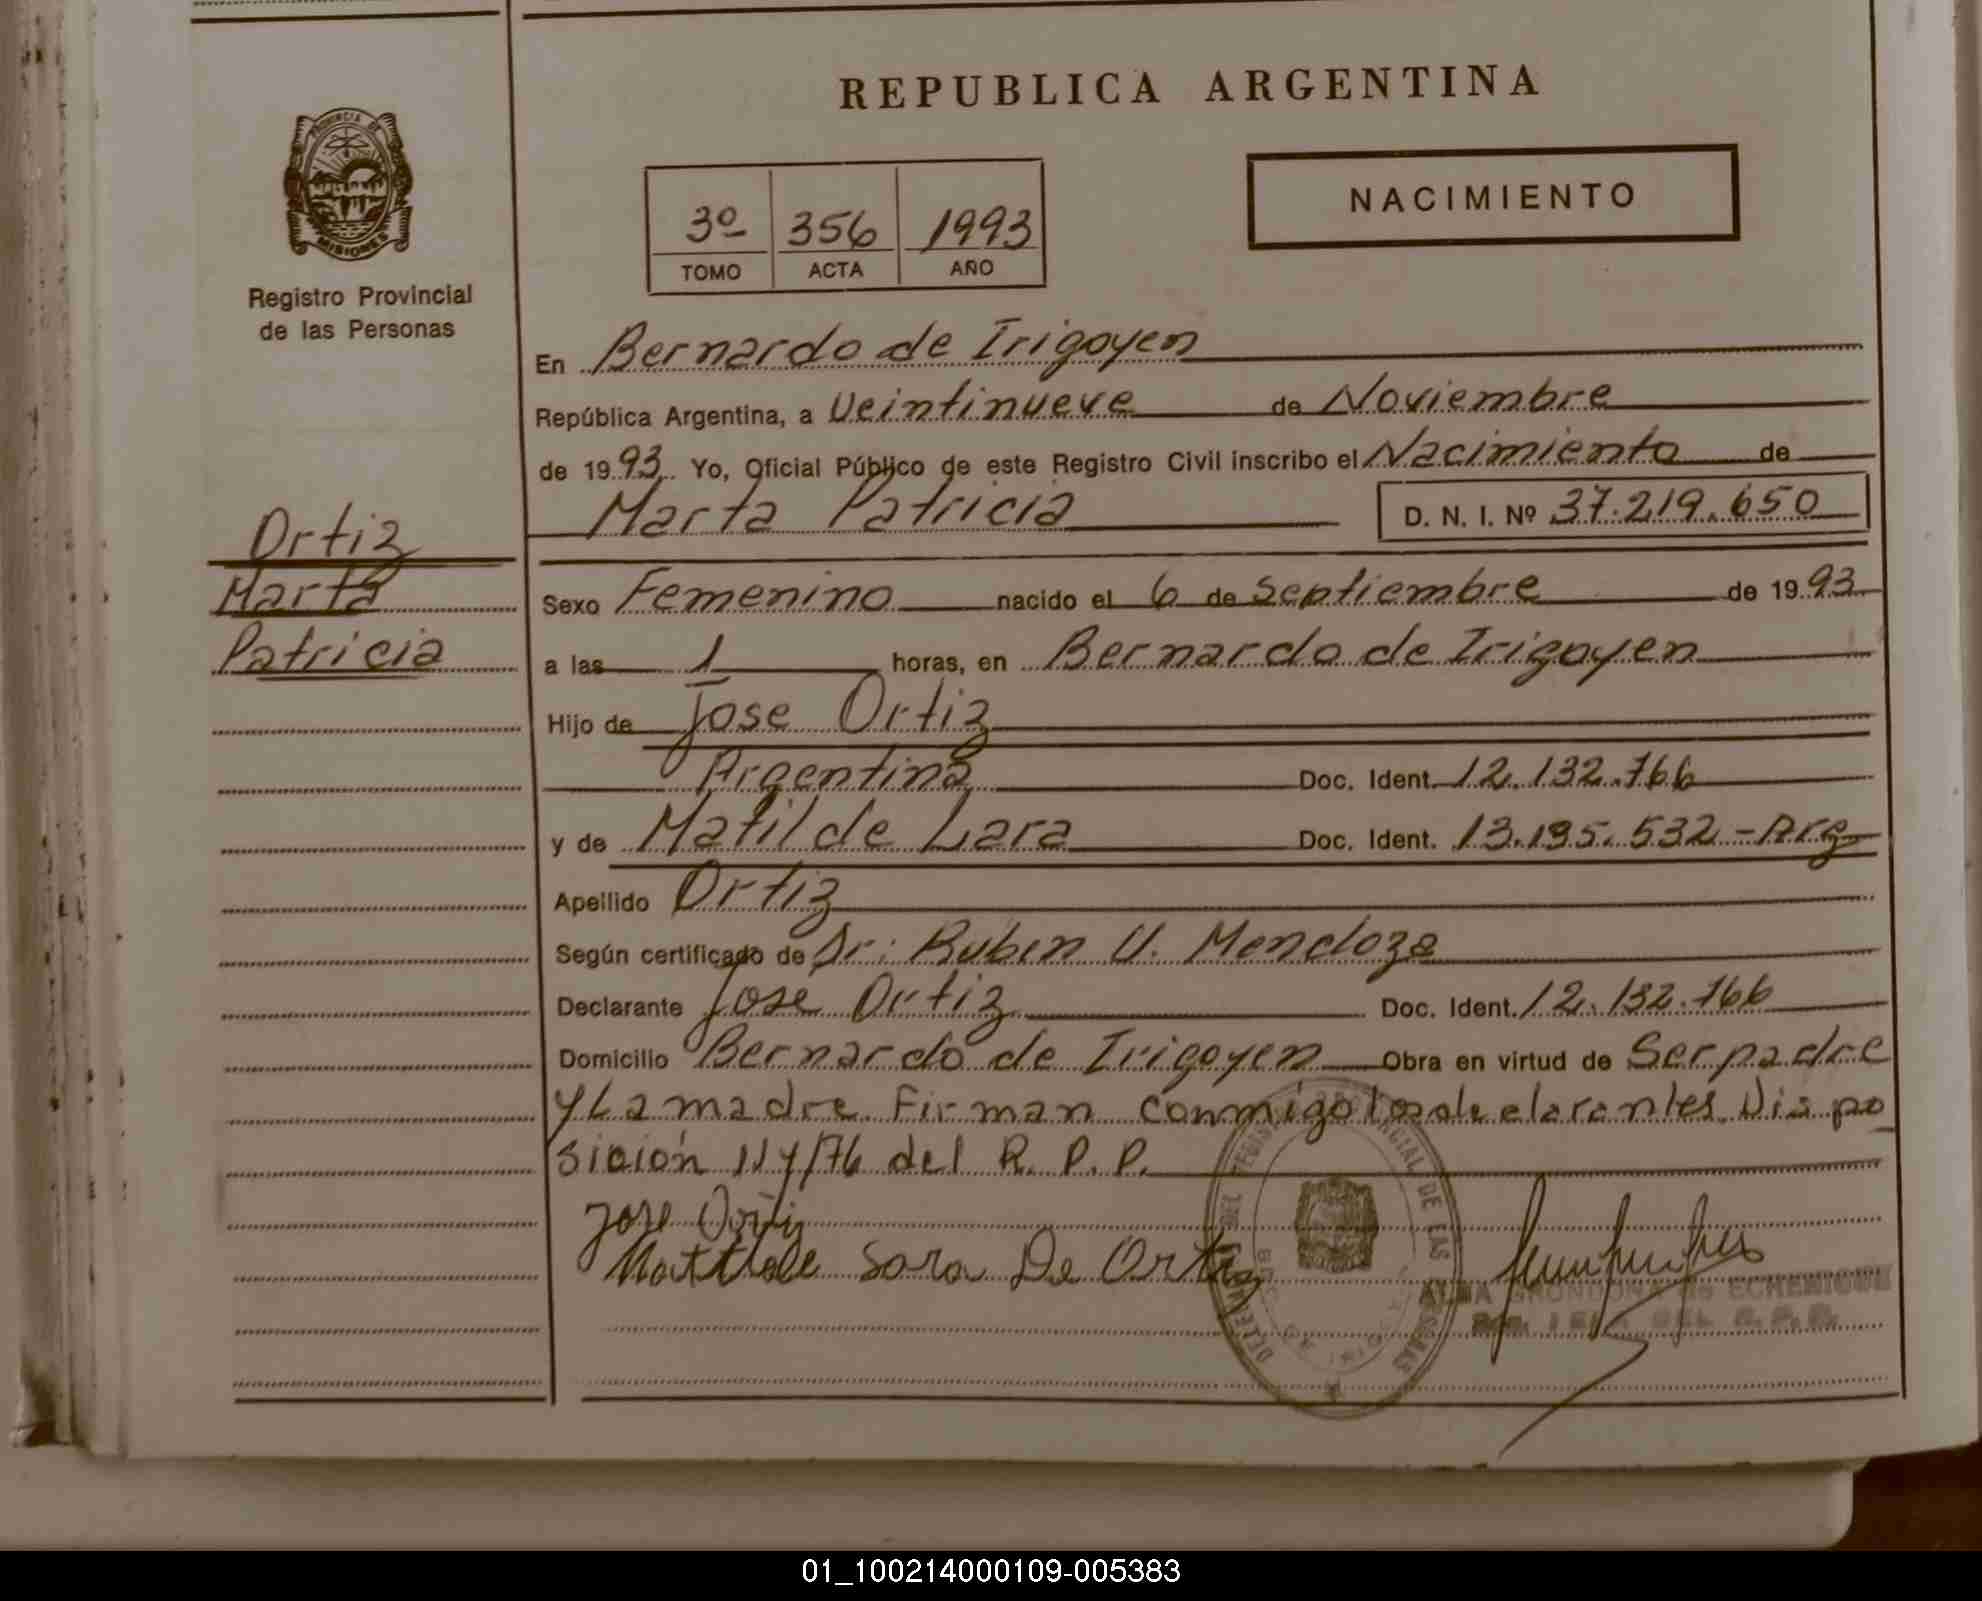 REPUBLICA ARGENTINA
PROVINCIA DE
MISIONES
Registro Provincial
de las Personas
3º 356 1993
TOMO ACTA AÑO
NACIMIENTO
En Bernardo de Irigoyen
República Argentina, a Veintinueve de Noviembre
de 1993 Yo, Oficial Público de este Registro Civil inscribo el Nacimiento de
Marta Patricia D. N. I. Nº 37.219.650
Ortiz
Marta
Patricia
Sexo Femenino nacido el 6 de Septiembre de 1993
a las 1 horas, en Bernardo de Irigoyen
Hijo de Jose Ortiz
Argentina Doc. Ident. 12.132.766
y de Matilde Lara Doc. Ident. 13.195.532 - Arg
Apellido Ortiz
Según certificado de Dr: Ruben V. Mendoza
Declarante Jose Ortiz Doc. Ident. 12.132.766
Domicilio Bernardo de Irigoyen Obra en virtud de Ser padre
y La madre. Firman conmigo los declarantes. Dispo
sición 114/76 del R. P. P.
Jose Ortiz
Matilde Sara De Ortiz
DEL REGISTRO PROVINCIAL DE LAS PERSONAS
ALBA GRONDONA de ECHENIQUE
DEL R. P. P.
01_100214000109-005383